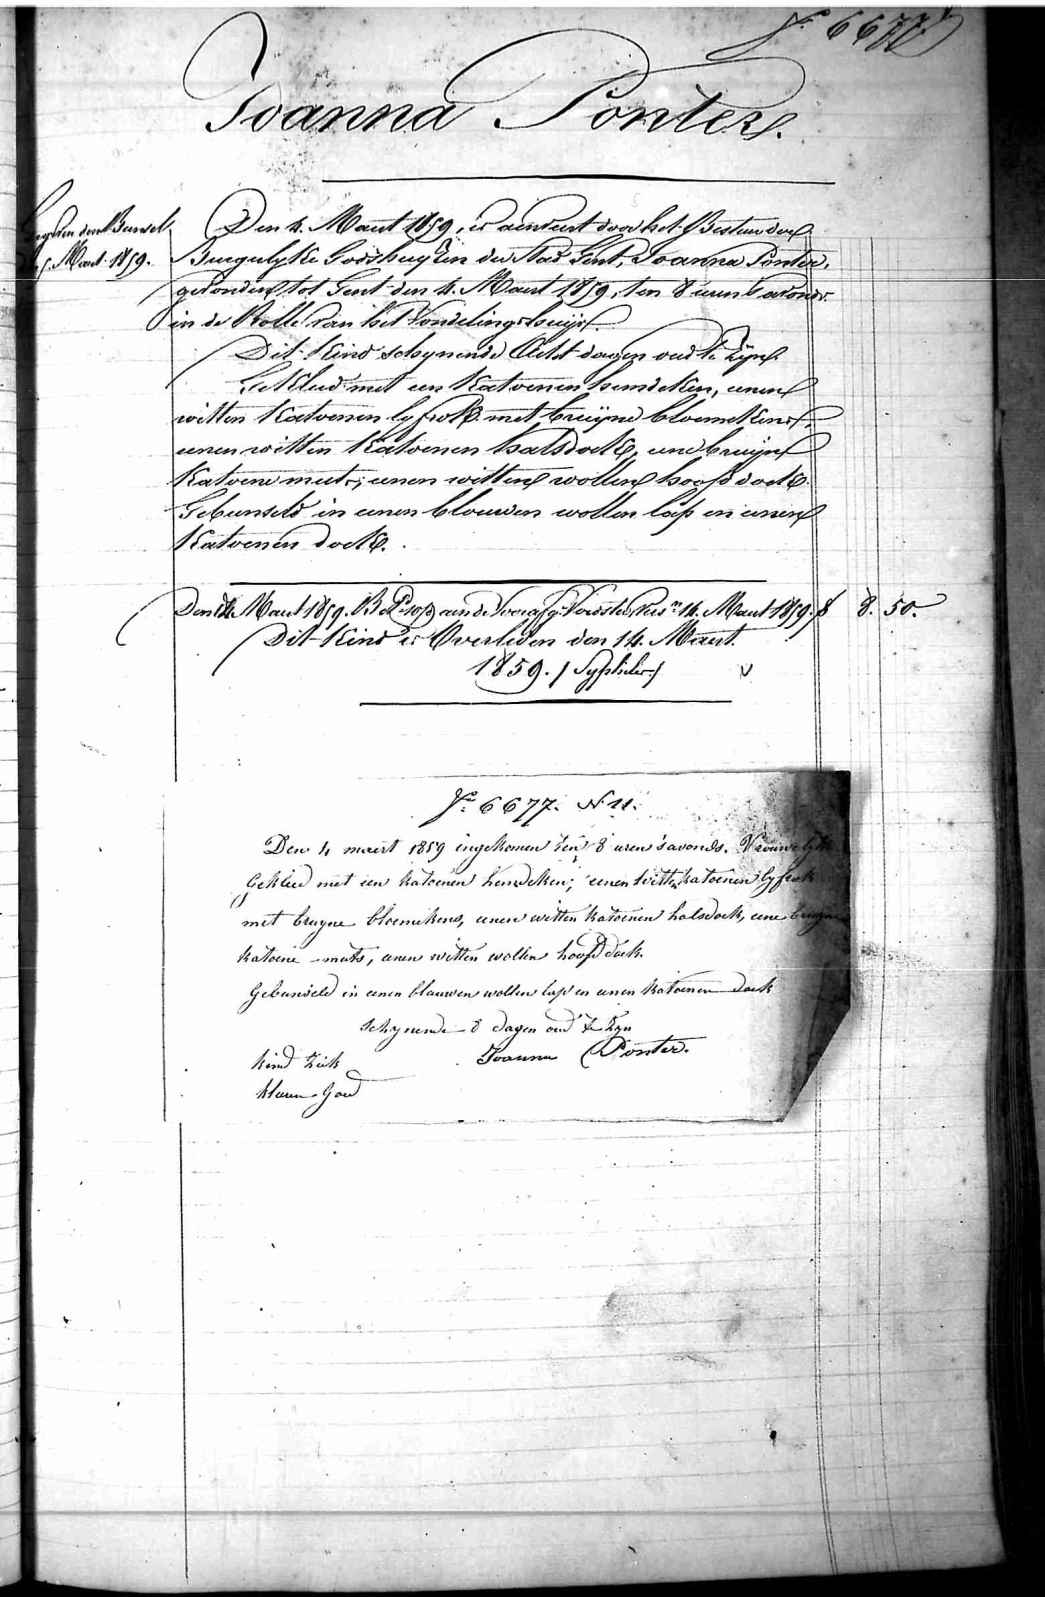 Fo 6677
Joanna Ponter.
den Bundel
5 Maert 1859.
Den 4. Maert 1859, is aenveert door het Bestuer der
Burgerlyke Godshuyzen der Stad Gent, Joanna Ponter,
gevonden tot Gent den 4. Maert 1859, ten 8 uren 's avonds
in de Rolle van het Vondelingshuys.
Dit Kind schynende Acht dagen oud te zyn.
Gekleed met een Katoenen hemdeken, eenen
witten Katoenen lyfrok met bruyne bloemekens,
eenen witten Katoenen halsdoek, eene bruyne
Katoene muts, eenen witten wollen hoofd doek.
Gebunseld in eenen blauwen wollen lap en eenen
Katoenen doek.
Den 14 Maert 1859. aen de Voorsz. 14. Maert 1859. f 8. 50.
Dit Kind is Overleden den 14. Maert.
1859. / Syphilis /
Fo 6677. N 11.
Den 4 maert 1859 ingekomen ten 8 uren 's avonds. Vrouwelyk
Gekleed met een katoenen hemdeken, eenen witten katoenen lyfrok
met bruyne bloemekens, eenen witten katoenen halsdoek, eene bruyne
katoene muts, eenen witten wollen hoofd doek.
Gebunseld in eenen blauwen wollen lap en eenen katoenen doek
schynende 8 dagen oud te zyn
kind ziek Joanna Ponter.